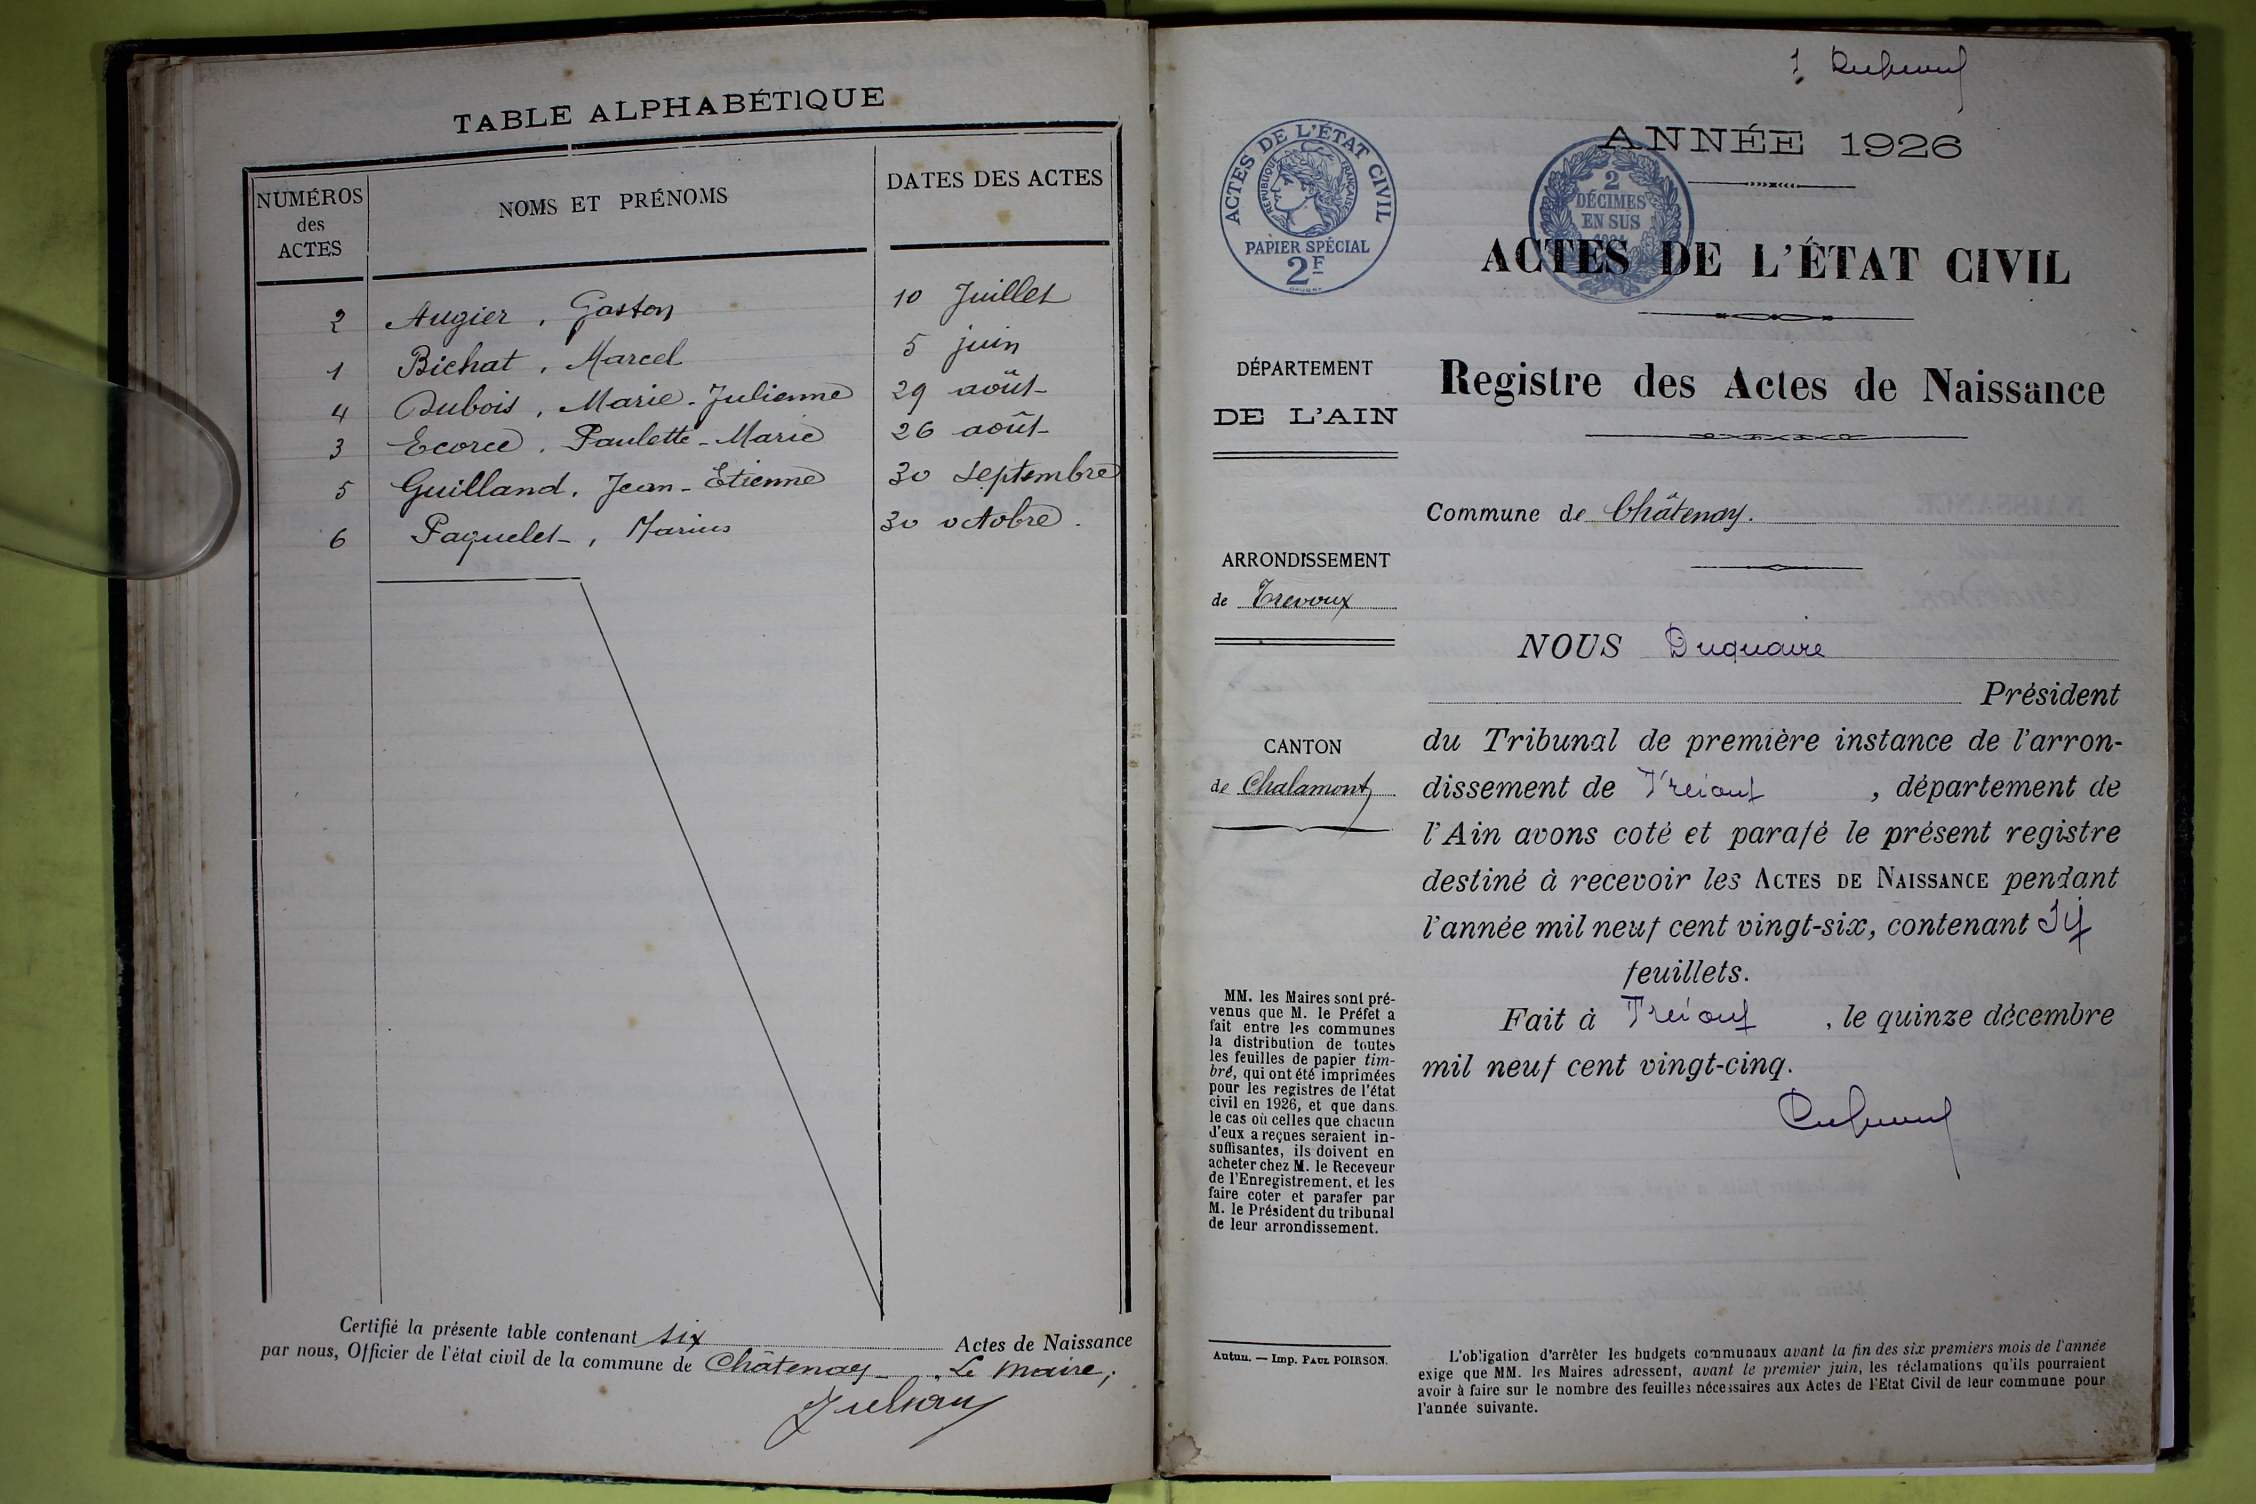 TABLE ALPHABÉTIQUE
NUMÉROS
des
ACTES
NOMS ET PRÉNOMS
DATES DES ACTES
2 Augier, Gaston 10 Juillet
1 Bichat, Marcel 5 juin
4 Dubois, Marie-Julienne 29 août
3 Ecorce, Paulette-Marie 26 août
5 Guilland, Jean-Etienne 30 septembre
6 Paquelet, Marius 30 octobre.
Certifié la présente table contenant six Actes de Naissance
par nous, Officier de l'état civil de la commune de Châtenay. Le Maire,
1
ANNÉE 1926
ACTES DE L'ÉTAT CIVIL
RÉPUBLIQUE FRANÇAISE
PAPIER SPÉCIAL
2F
2
DÉCIMES
EN SUS
ACTES DE L'ÉTAT CIVIL
Registre des Actes de Naissance
DÉPARTEMENT
DE L'AIN
Commune de Châtenay.
ARRONDISSEMENT
de Trevoux
CANTON
de Chalamont
NOUS Duquaire
Président
du Tribunal de première instance de l'arron-
dissement de Trévoux, département de
l'Ain avons coté et parafé le présent registre
destiné à recevoir les ACTES DE NAISSANCE pendant
l'année mil neuf cent vingt-six, contenant six
feuillets.
Fait à Trévoux, le quinze décembre
mil neuf cent vingt-cinq.
MM. les Maires sont pré-
venus que M. le Préfet a
fait entre les communes
la distribution de toutes
les feuilles de papier tim-
bré, qui ont été imprimées
pour les registres de l'état
civil en 1926, et que dans
le cas où celles que chacun
d'eux a reçues seraient in-
suffisantes, ils doivent en
acheter chez M. le Receveur
de l'Enregistrement, et les
faire coter et parafer par
M. le Président du tribunal
de leur arrondissement.
Autun. — Imp. PAUL POIRSON.
L'obligation d'arrêter les budgets communaux avant la fin des six premiers mois de l'année
exige que MM. les Maires adressent, avant le premier juin, les réclamations qu'ils pourraient
avoir à faire sur le nombre des feuilles nécessaires aux Actes de l'Etat Civil de leur commune pour
l'année suivante.